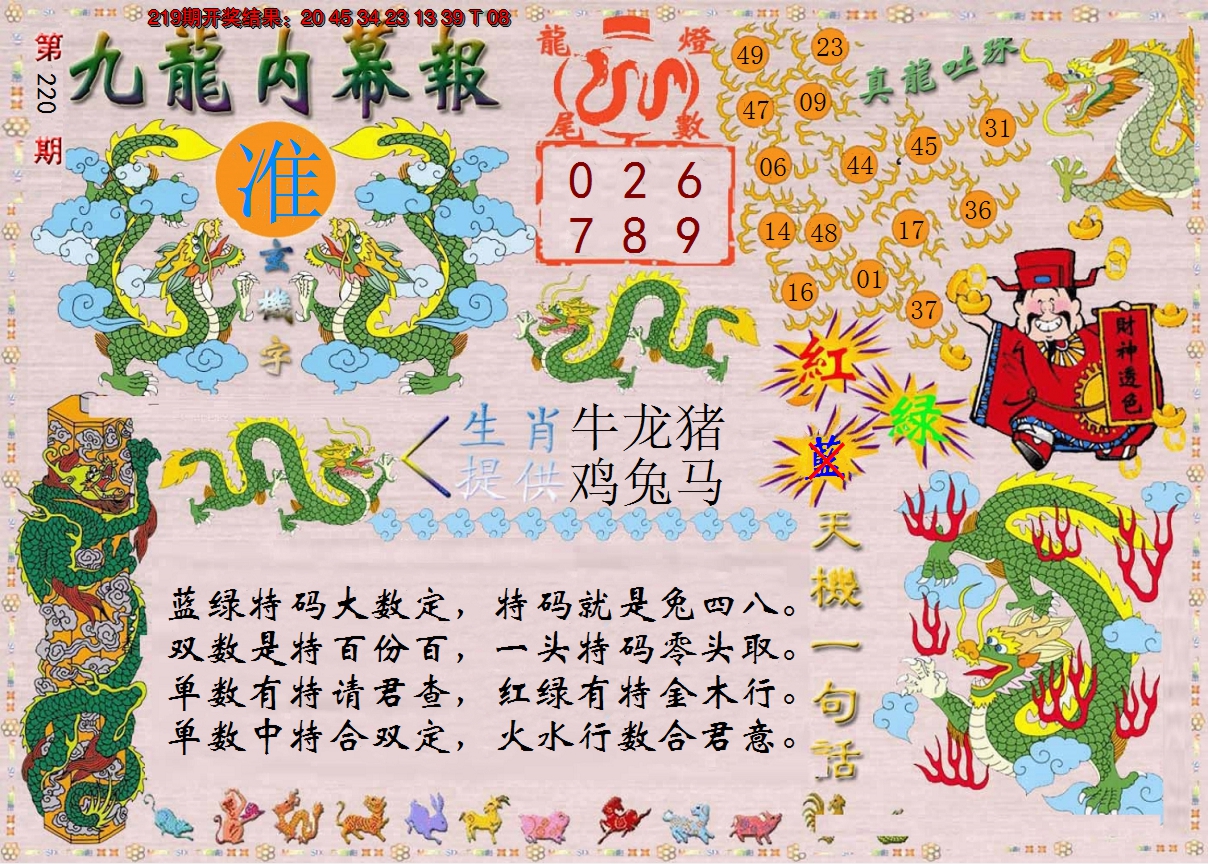 219期开奖结果：20 45 34 23 13 39 T 08
第220期
九龍内幕報
准
玄機字
龍燈
尾數
0 2 6
7 8 9
真龍吐珠
49 23
47 09
45 31
06 44
36
14 48 17
16 01
37
財神透色
紅
绿
藍
生肖 牛龙猪
提供 鸡兔马
天機一句話
蓝绿特码大数定，特码就是兔四八。
双数是特百份百，一头特码零头取。
单数有特请君查，红绿有特金木行。
单数中特合双定，火水行数合君意。